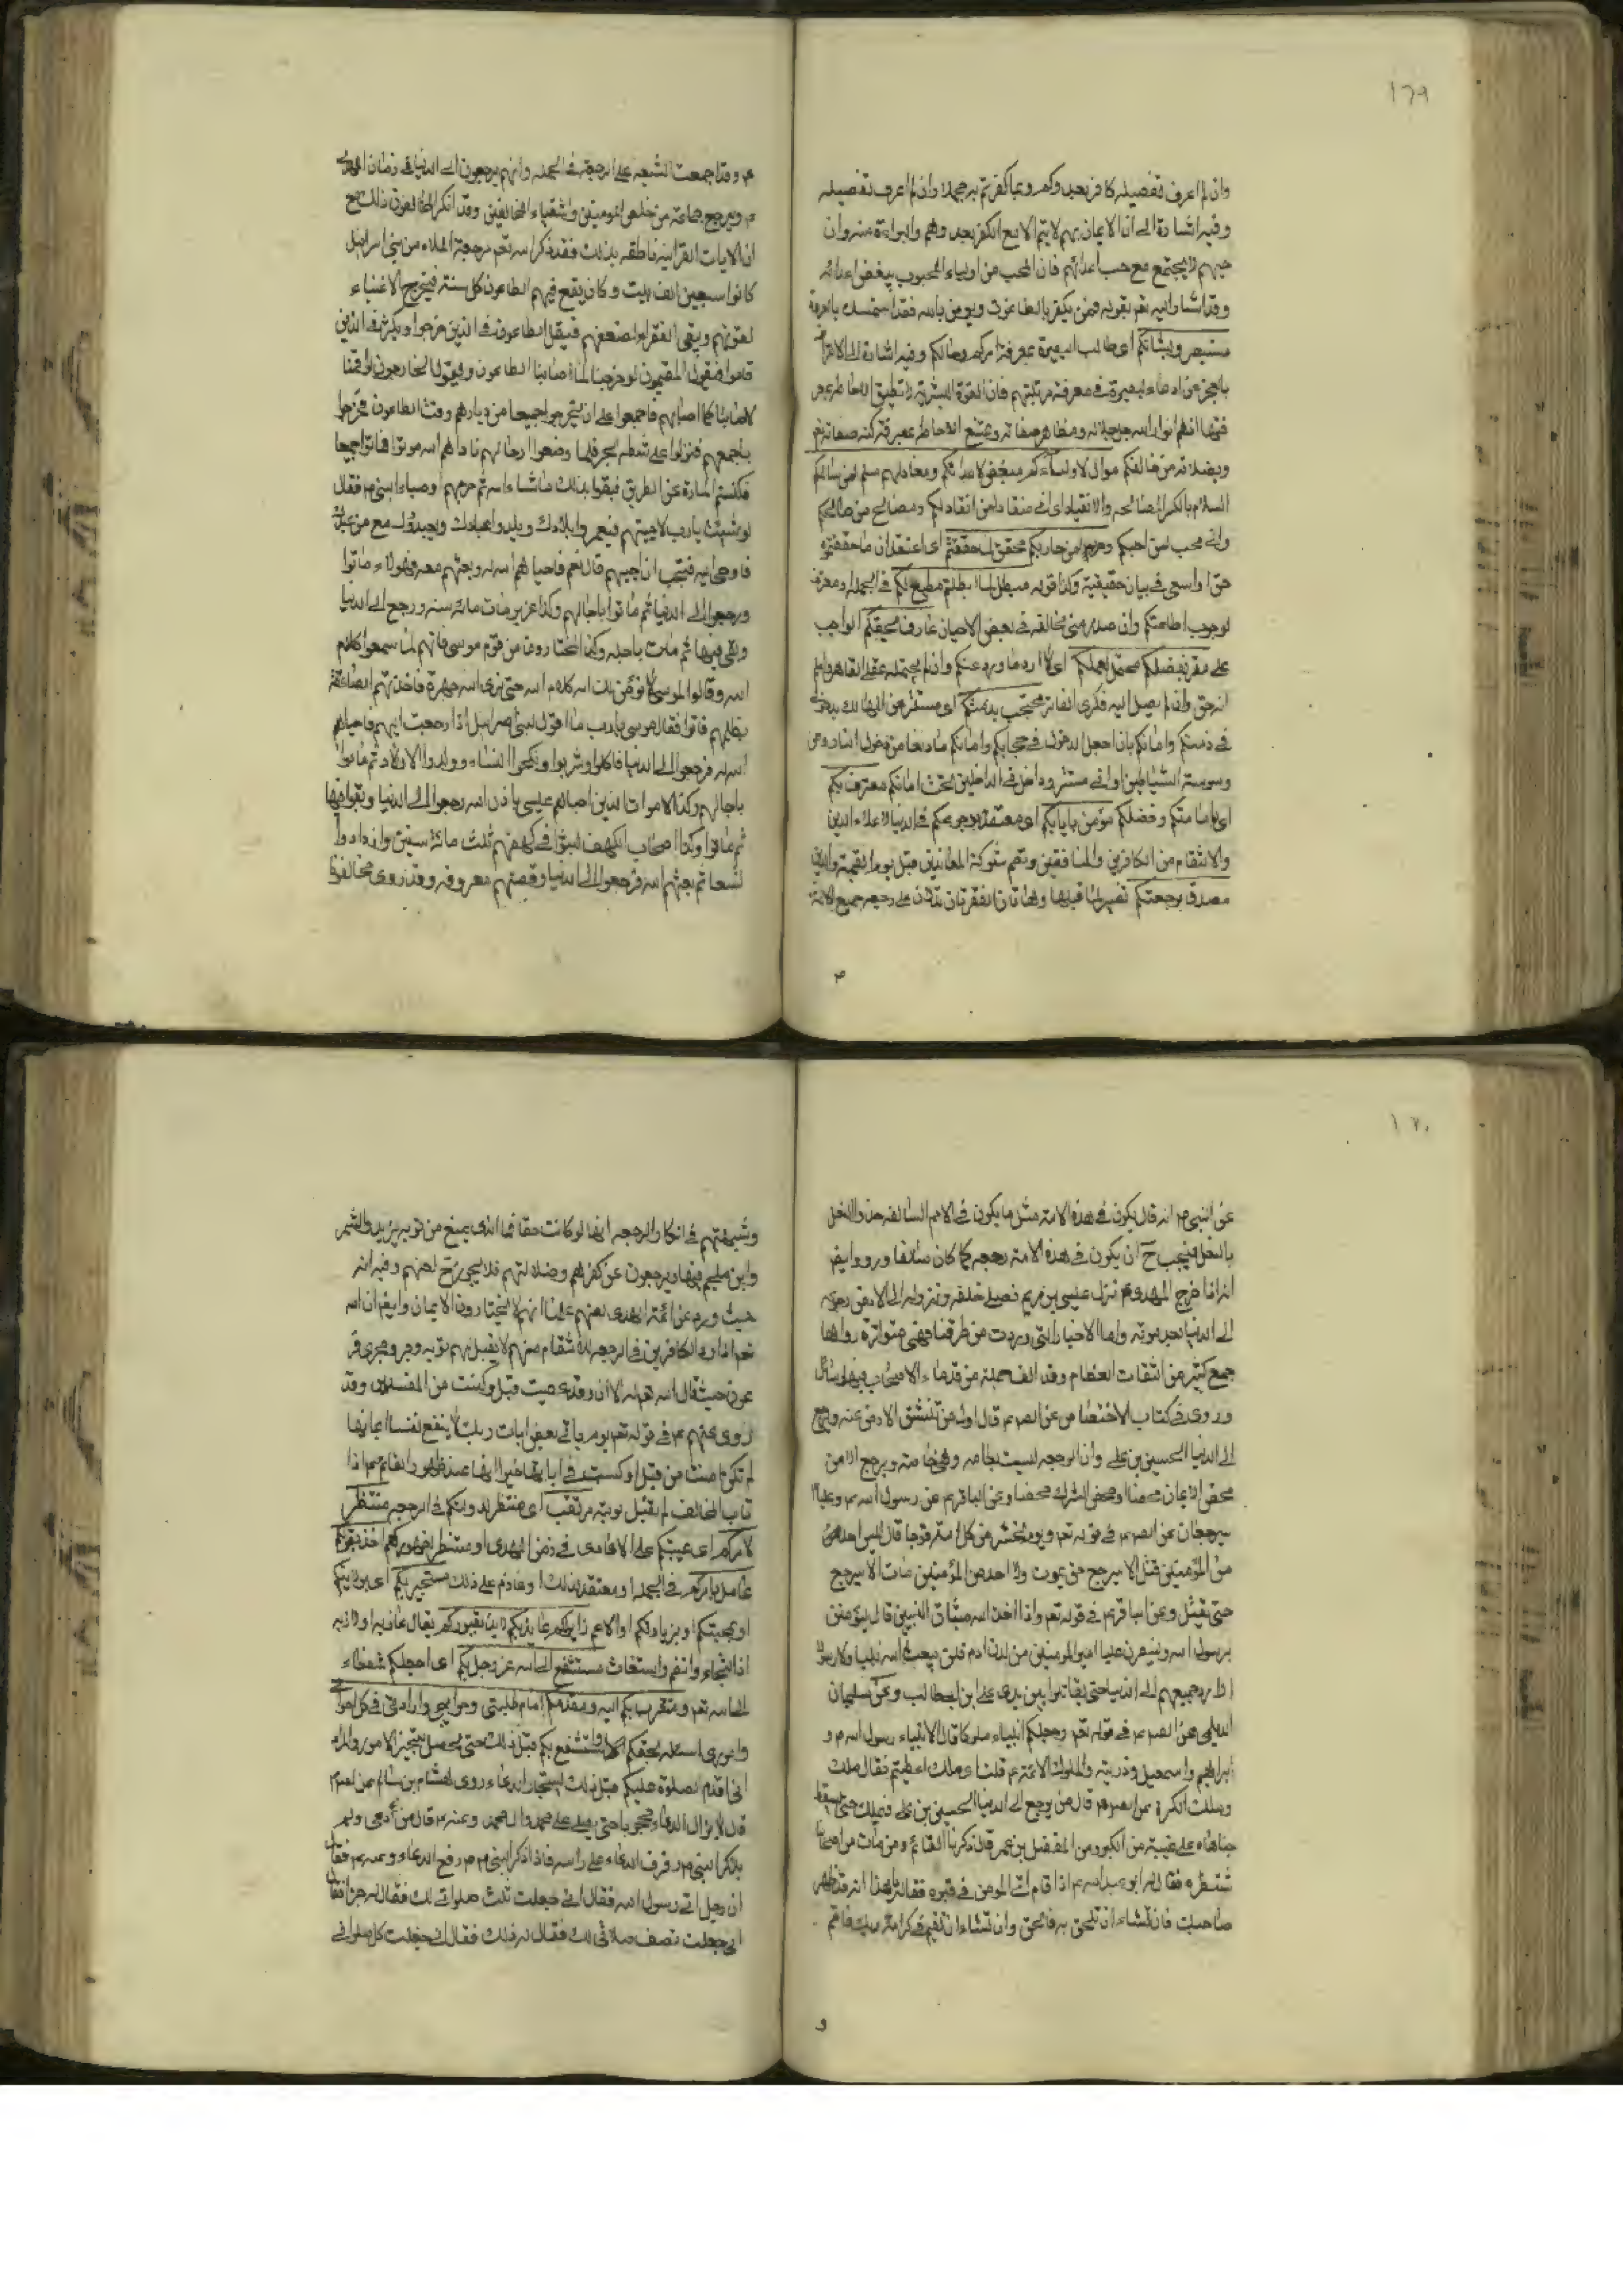 ١٦٩
وان لم اعرف تفصيله كافر بعدوكم وبما كفرتم به مجملا وان لم اعرف تفصيله
وفيه اشارة الى ان الايمان بهم لا يتم الا مع الكفر بعدوهم والبراءة منه وان
حبهم لا يجتمع مع حب اعدائهم فان المحب من اولياء المحبوب يبغض اعدائه
وقد اشار اليه تعم بقوله فمن يكفر بالطاغوت ويومن بالله فقد استمسك بالعروة
مستبصر وبشانكم اى طالب البصيرة بمعرفة امركم وحالكم وفيه اشارة الى الاعتراف
بالعجز عن ادعاء البصيرة في معرفة مرتبتهم فان القوة البشرية لا تطيق الاحاطة
فهما انهم انوار الله جل جلاله ومظاهر صفاته ويمتنع الاحاطة بمعرفة كنه صفاته تعم
وبضلالة من خالفكم موال لاولياءكم مبغض لاعدائكم ومعاد لهم سلم لمن سالمكم
السلم بالكسر المصالحه والانقياد اى انى منقاد لمن انقاد لكم ومصالح من صالحكم
وانى محب لمن احبكم وحرب لمن حاربكم محقق لما حققتم اى اعتقد ان ما حققتموه
حق او اسعى في بيان حقيقته وكذا قوله مبطل لما ابطلتم مطيع لكم في الجملة ومعترف
لوجوب اطاعتكم وان صدر منى مخالفة في بعض الاحيان عارف بحقكم الواجب
على مقر بفضلكم محتمل لعلمكم اى لا ارد ما ورد عنكم وان لم يحتمله عقلى القاصر واعلم
انه حق وان لم يصل اليه فكرى الفاتر محتجب بذمتكم اى مستتر من المهالك بدخولى
في ذمتكم وامانكم بان اجعل الدخول في حجابكم وامانكم مانعا من دخول النار ومن
وسوسة الشياطين او انى مستتر وداخل في الداخلين تحت امانكم معترف بكم
اى بامامتكم وفضلكم مؤمن بايابكم اى معتقد برجوعكم في الدنيا لاعلاء الدين
والانتقام من الكافرين والمنافقين وقصم شوكة المعاندين قبل يوم القيمة والدين
مصدق برجعتكم تفسير لما قبلها وهاتان الفقرتان تدلان على رجعه جميع الائمة
م
م وقد اجمعت الشيعه على الرجعة في الجمله وانهم يرجعون الى الدنيا في زمان المهدى
م ويرجع جماعة من خلص المومنين واشقياء المخالفين وقد انكر المخالفون ذلك مع
ان الايات القرانيه ناطقه بذلك فقد ذكر الله تعم رجعة الملاء من بنى اسرائيل
كانوا سبعين الف بيت وكان يقع فيهم الطاعون كل سنة فيخرج الاغنياء
لقوتهم ويبقى الفقراء لضعفهم فيقل الطاعون في الذين خرجوا ويكثر في الذين
قاموا فيقول المقيمون لو خرجنا لما اصابنا الطاعون ويقول الخارجون لو قمنا
لاصابنا كما اصابهم فاجمعوا على ان يخرجوا جميعا من ديارهم وقت الطاعون فخرجوا
باجمعهم فنزلوا على شط بحر فلما وضعوا رحالهم ناداهم الله موتوا فماتوا جميعا
فكنستم المارة عن الطريق فبقوا بذلك ماشاء الله ثم مر بهم اوصياء النبى م فقال
لو شئت يا رب لاحييتهم فيعمروا بلادك ويلدوا عبادك ويعبدوك مع من عبدك
فاوحى اليه فتحب ان احييهم قال نعم فاحياهم الله له وبعثهم معه فهولاء ماتوا
ورجعوا الى الدنيا ثم ماتوا باجالهم وكذا عزير مات مائه سنه ورجع الى الدنيا
وبقى فيها ثم مات باجله وكذا المختارون من قوم موسى فانهم لما سمعوا كلام
الله وقالوا لموسى لا نؤمن بانه كلام الله حتى نرى الله جهرة فاخذتهم الصاعقة
بظلمهم فماتوا فقال موسى يا رب ما اقول لبنى اسرائيل اذا رجعت اليهم فاحياهم
الله له فرجعوا الى الدنيا فاكلوا وشربوا ونكحوا النساء وولدوا الاولاد ثم ماتوا
باجالهم وكذا الاموات الذين احياهم عيسى باذن الله رجعوا الى الدنيا وبقوا فيها
ثم ماتوا وكذا اصحاب الكهف لبثوا في كهفهم ثلث مائة سنين وازدادوا
تسعا ثم بعثهم الله فرجعوا الى الدنيا وقصتهم معروفه وقد روى مخالفونا
١٧٠
عن النبى م انه قال يكون في هذه الامة مثل ما يكون في الامم السالفه حذو النعل
بالنعل فيجب ح ان يكون في هذه الامة رجعه كما كان سالفا ورووا ايضا
انه اذا خرج المهدى م نزل عيسى بن مريم فصلى خلفه ونزوله الى الارض رجوعه
الى الدنيا بعد موته واما الاخبار التى وردت من طرقنا فهى متواترة رواها
جمع كثير من الثقات العظام وقد الف جملة من قدماء الاصحاب فيها رسائل
وروى في كتاب الاختصاص عن الصم م قال اول من تنشق الارض عنه ويرجع
الى الدنيا الحسين بن على وان الرجعه ليست بعامه وهى خاصة ويرجع الا من
محض الايمان محضا او محض الشرك محضا وعن الباقر م عن رسول الله م وعليا
سيرجعان عن الصم م في قوله تعم ويوم نحشر من كل امة فوجا قال ليس احد
من المؤمنين قتل الا سيرجع حتى يموت ولا احد من المؤمنين مات الا سيرجع
حتى يقتل وعن الباقر م في قوله تعم واذ اخذ الله ميثاق النبيين قال ليؤمنن
برسول الله ولينصرن عليا امير المومنين من لدن ادم فلن يبعث الله نبيا ولا رسولا
الا رد جميعهم الى الدنيا حتى يقاتلوا بين يدى على ابن ابيطالب وعن سليمان
الديلمى عن الصم م في قوله تعم وجعلكم انبياء ملوكا قال الانبياء رسول الله م و
ابراهيم واسمعيل وذريته والملوك الائمة م قلت اى ملك اعطيتم فقال ملك
وملك الكرة عن الصم م قال من يرجع الى الدنيا الحسين بن على فيملك حتى يسقط
حاجباه على عينيه من الكبر وعن المفضل بن عمر قال ذكرنا القائم ومن مات من اصحابنا
ننتظره فقال لنا ابو عبد الله م اذا قام اتى المومن في قبره فقال له يا هذا انه قد ظهر
صاحبك فان تشاء ان تلحق به فالحق وان تشاء ان تقيم في كرامة ربك فاقم
و
وشبهتهم في انكار الرجعه انها لو كانت حقا فما الذى يمنع من توبه يزيد والشمر
وابن ملجم فيها ويرجعون عن كفرهم وضلالتهم فلا يجوز ح لعنهم وفيه انه
حيث ورد عن ائمة الهدى لعنهم علمنا انهم لا يختارون الايمان وايضا ان الله
تعم اذا رد الكافرين في الرجعه للانتقام منهم لا يقبل لهم توبه وجرو مجرى فر
عون حيث قال الله تعم له الان وقد عصيت قبل وكنت من المفسدين وقد
روى عنهم م في قوله تعم يوم ياتى بعض ايات ربك لا ينفع نفسا ايمانها
لم تكن امنت من قبل او كسبت في ايمانها خيرا انها عند ظهور القائم م اذا
تاب المخالف لم يقبل توبته مرتقب اى منتظر لدولتكم في الرجعه منتظر
لامركم اى غيبتكم على الاعادى في زمن المهدى او منتظر لظهوركم اخذ بقولكم
عامل بامركم في الجملة او معتقد بذلك او عازم على ذلك مستجير بكم اى بولايتكم
او بمحبتكم او بزيارتكم او الاعم زاير لكم عايذ بكم لايذ بقبوركم يقال عاذ به ولاذ به
اذا التجاء وانضم واستغاث مستشفع الى الله عز وجل بكم اى اجعلكم شفعاء
الى الله تعم ومتقرب بكم اليه ومقدمكم امام طلبتى وحوايجى وارادتى في كل احوالى
وامورى اسئله بحقكم واستشفع بكم قبل ذلك حتى يحصل بتنجز الامور والمراد
انى اقدم الصلوة عليكم قبل ذلك ليستجاب الدعاء روى هشام بن سالم عن الصم م
قال لا يزال الدعاء محجوبا حتى يصلى على محمد وال محمد وعنه م قال من دعى ولم
يذكر النبى م رفرف الدعاء على راسه فاذا ذكر النبى م رفع الدعاء وعنه م فقال
ان رجل اتى رسول الله فقال انى جعلت ثلث صلواتى لك فقال له خيرا فقال
انى جعلت نصف صلاتى لك فقال له ذلك فقال انى جعلت كل صلواتى